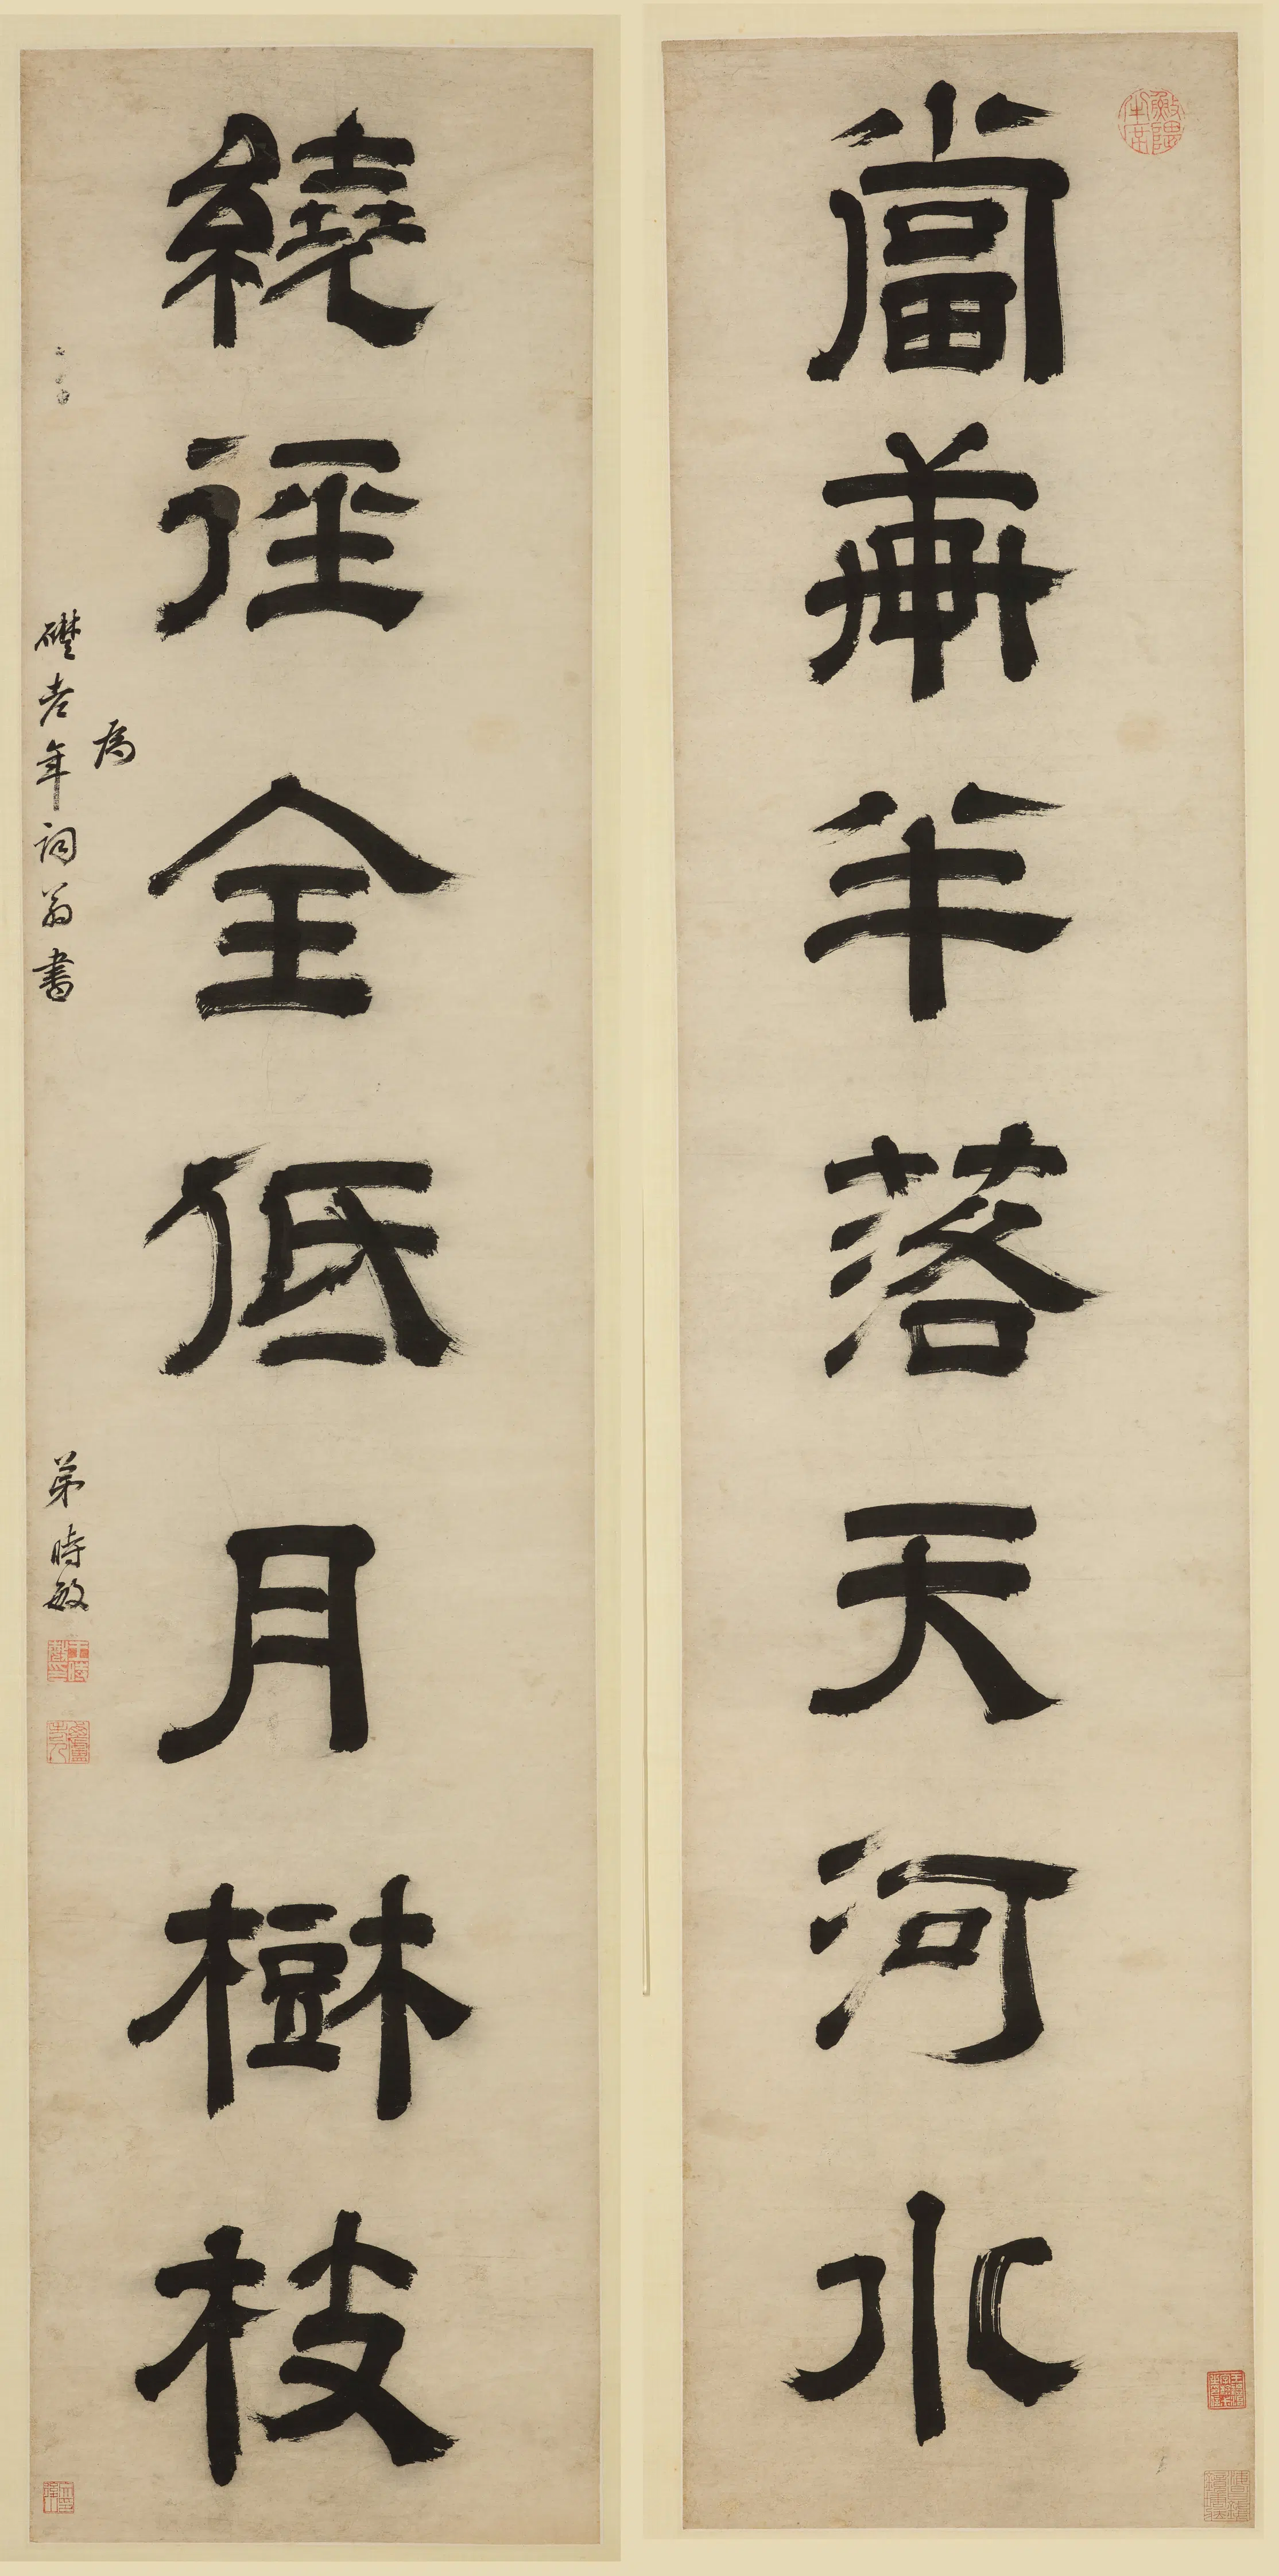 當華半落天河水
繞徑全低月樹枝
為
礎老年詞翁書
弟時敏
王時敏印